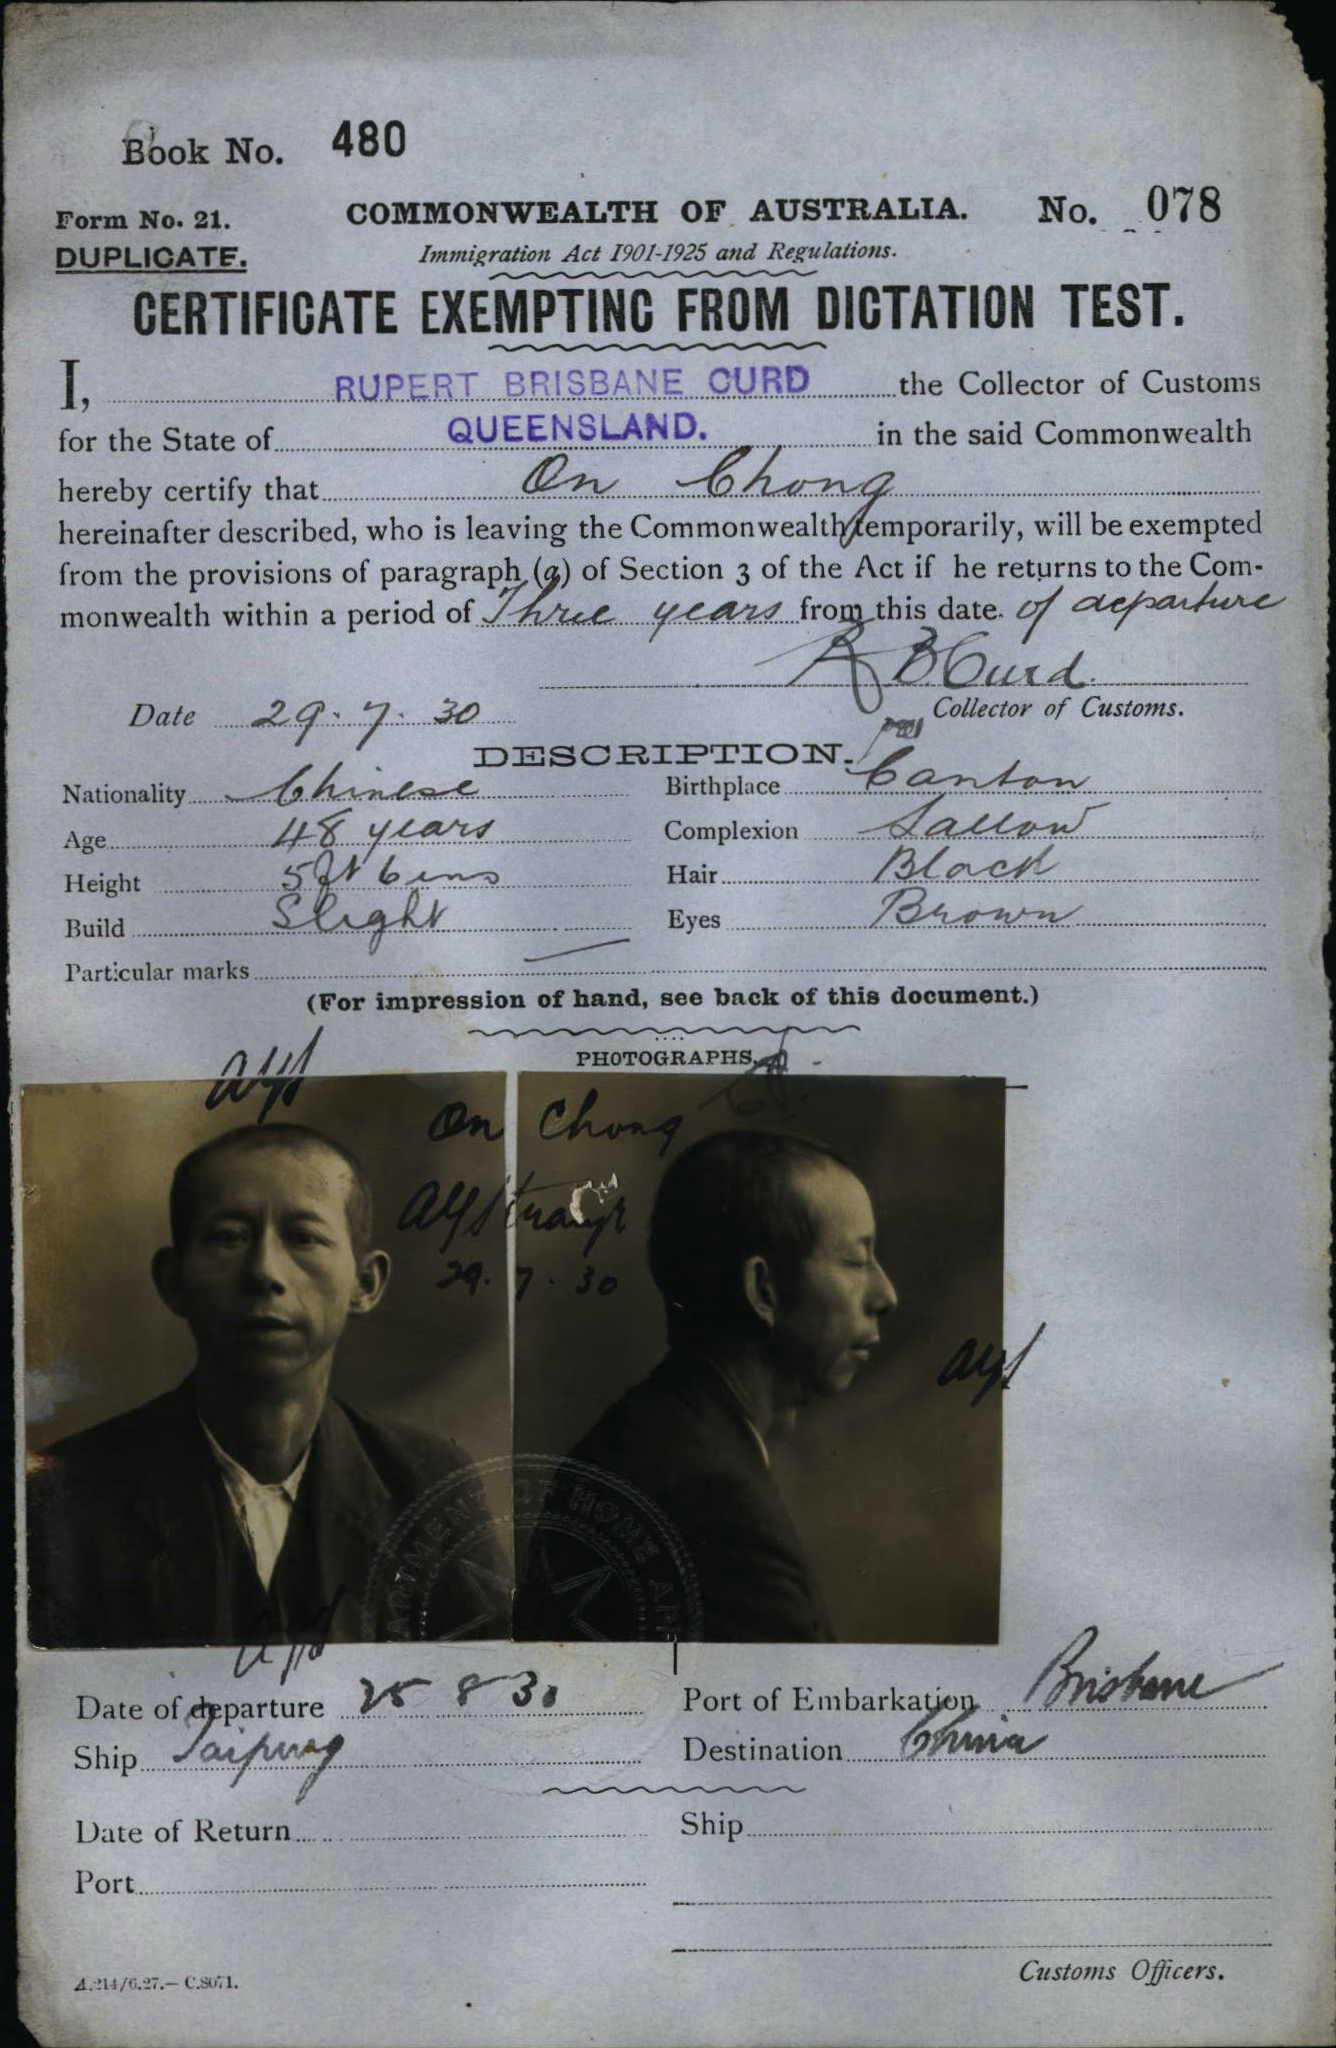 Book No. 480
Form No. 21. COMMONWEALTH OF AUSTRALIA. No. 078
DUPLICATE. Immigration Act 1901-1925 and Regulations.
CERTIFICATE EXEMPTING FROM DICTATION TEST.
I, RUPERT BRISBANE CURD the Collector of Customs
for the State of QUEENSLAND. in the said Commonwealth
hereby certify that On Chong
hereinafter described, who is leaving the Commonwealth temporarily, will be exempted
from the provisions of paragraph (a) of Section 3 of the Act if he returns to the Com-
monwealth within a period of Three years from this date. of departure
R B Curd.
Date 29.7.30 Collector of Customs.
DESCRIPTION.
Nationality Chinese Birthplace Canton
Age 48 years Complexion Sallow
Height 5 ft 6 ins Hair Black
Build Slight Eyes Brown
Particular marks
(For impression of hand, see back of this document.)
PHOTOGRAPHS.
On Chong
29.7.30
DEPARTMENT OF HOME AFF
Date of departure 25 8 30 Port of Embarkation Brisbane
Ship Taiping Destination China
Date of Return Ship
Port
Customs Officers.
A.214/6.27.— C.8071.